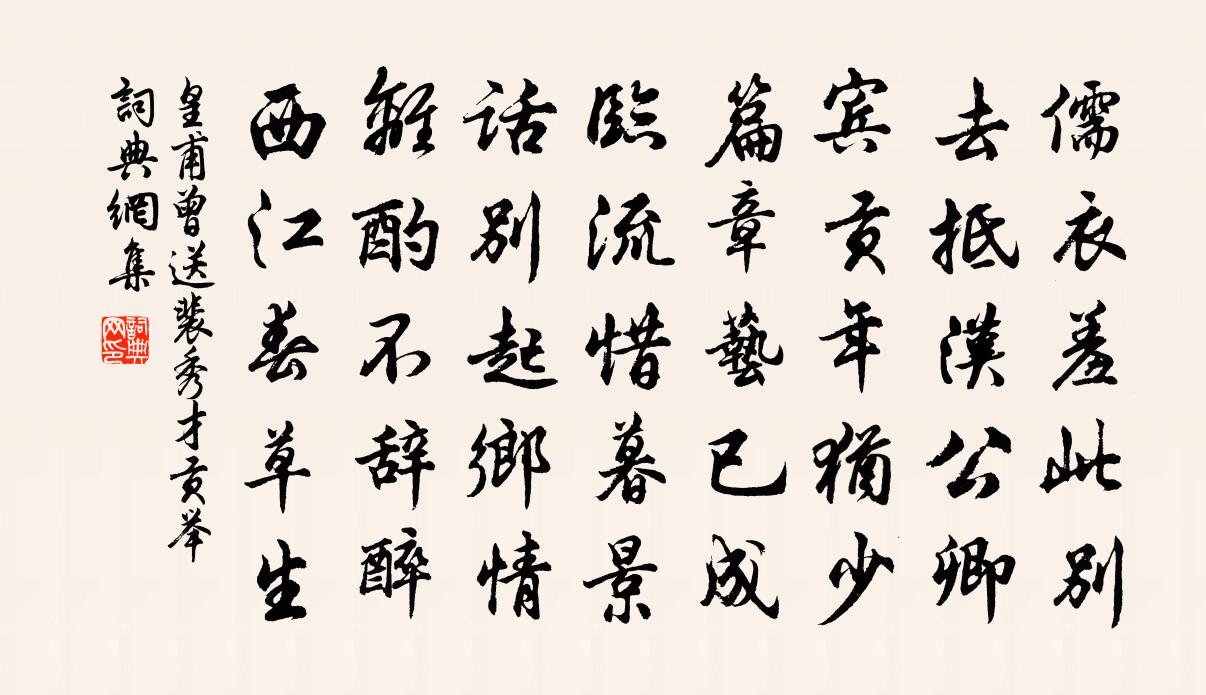 儒衣羞此别
去抵漢公卿
宾贡年猶少
篇章藝已成
臨流惜暮景
话别起鄉情
離酌不辞醉
西江春草生
皇甫曾送裴秀才贡举
詞典網集
詞典网印